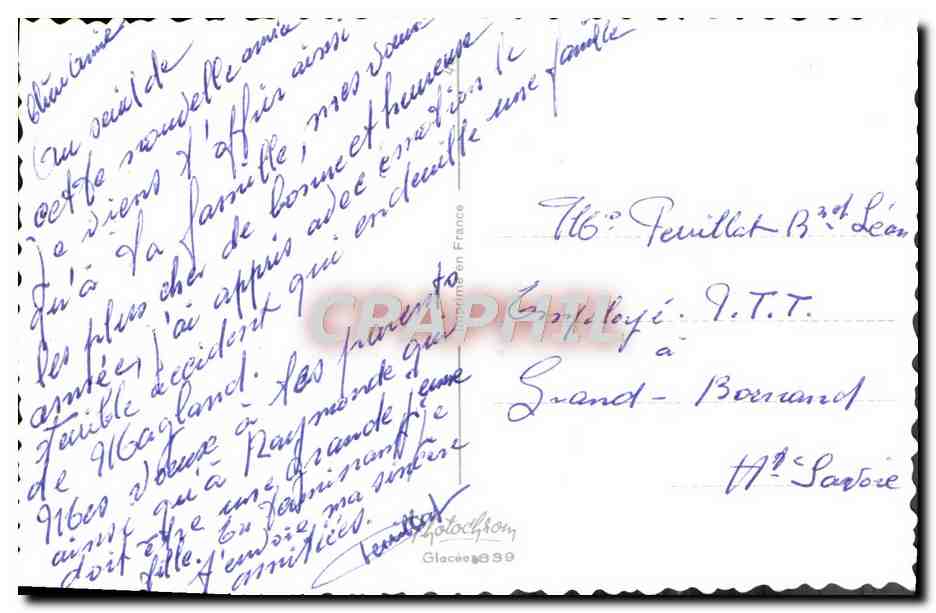 Chère Annie
Au seuil de
cette nouvelle année
je viens t'offrir ainsi
qu'à ta famille, mes vœux
les plus cher de bonne et heureuse
année, j'ai appris avec émotion le
terrible accident qui endeuille une famille
de Magland.
Mes vœux à tes parents
ainsi qu'à Raymonde qui
doit être une grande jeune
fille. En terminant je
t'envoie ma sincère
amitiées.
Feuillat
Imprimé en France
CPAPHIL
Photochrom
Glacée 899
Feuillat Léon
Employé. P.T.T.
à
Grand-Bornand
Hte Savoie